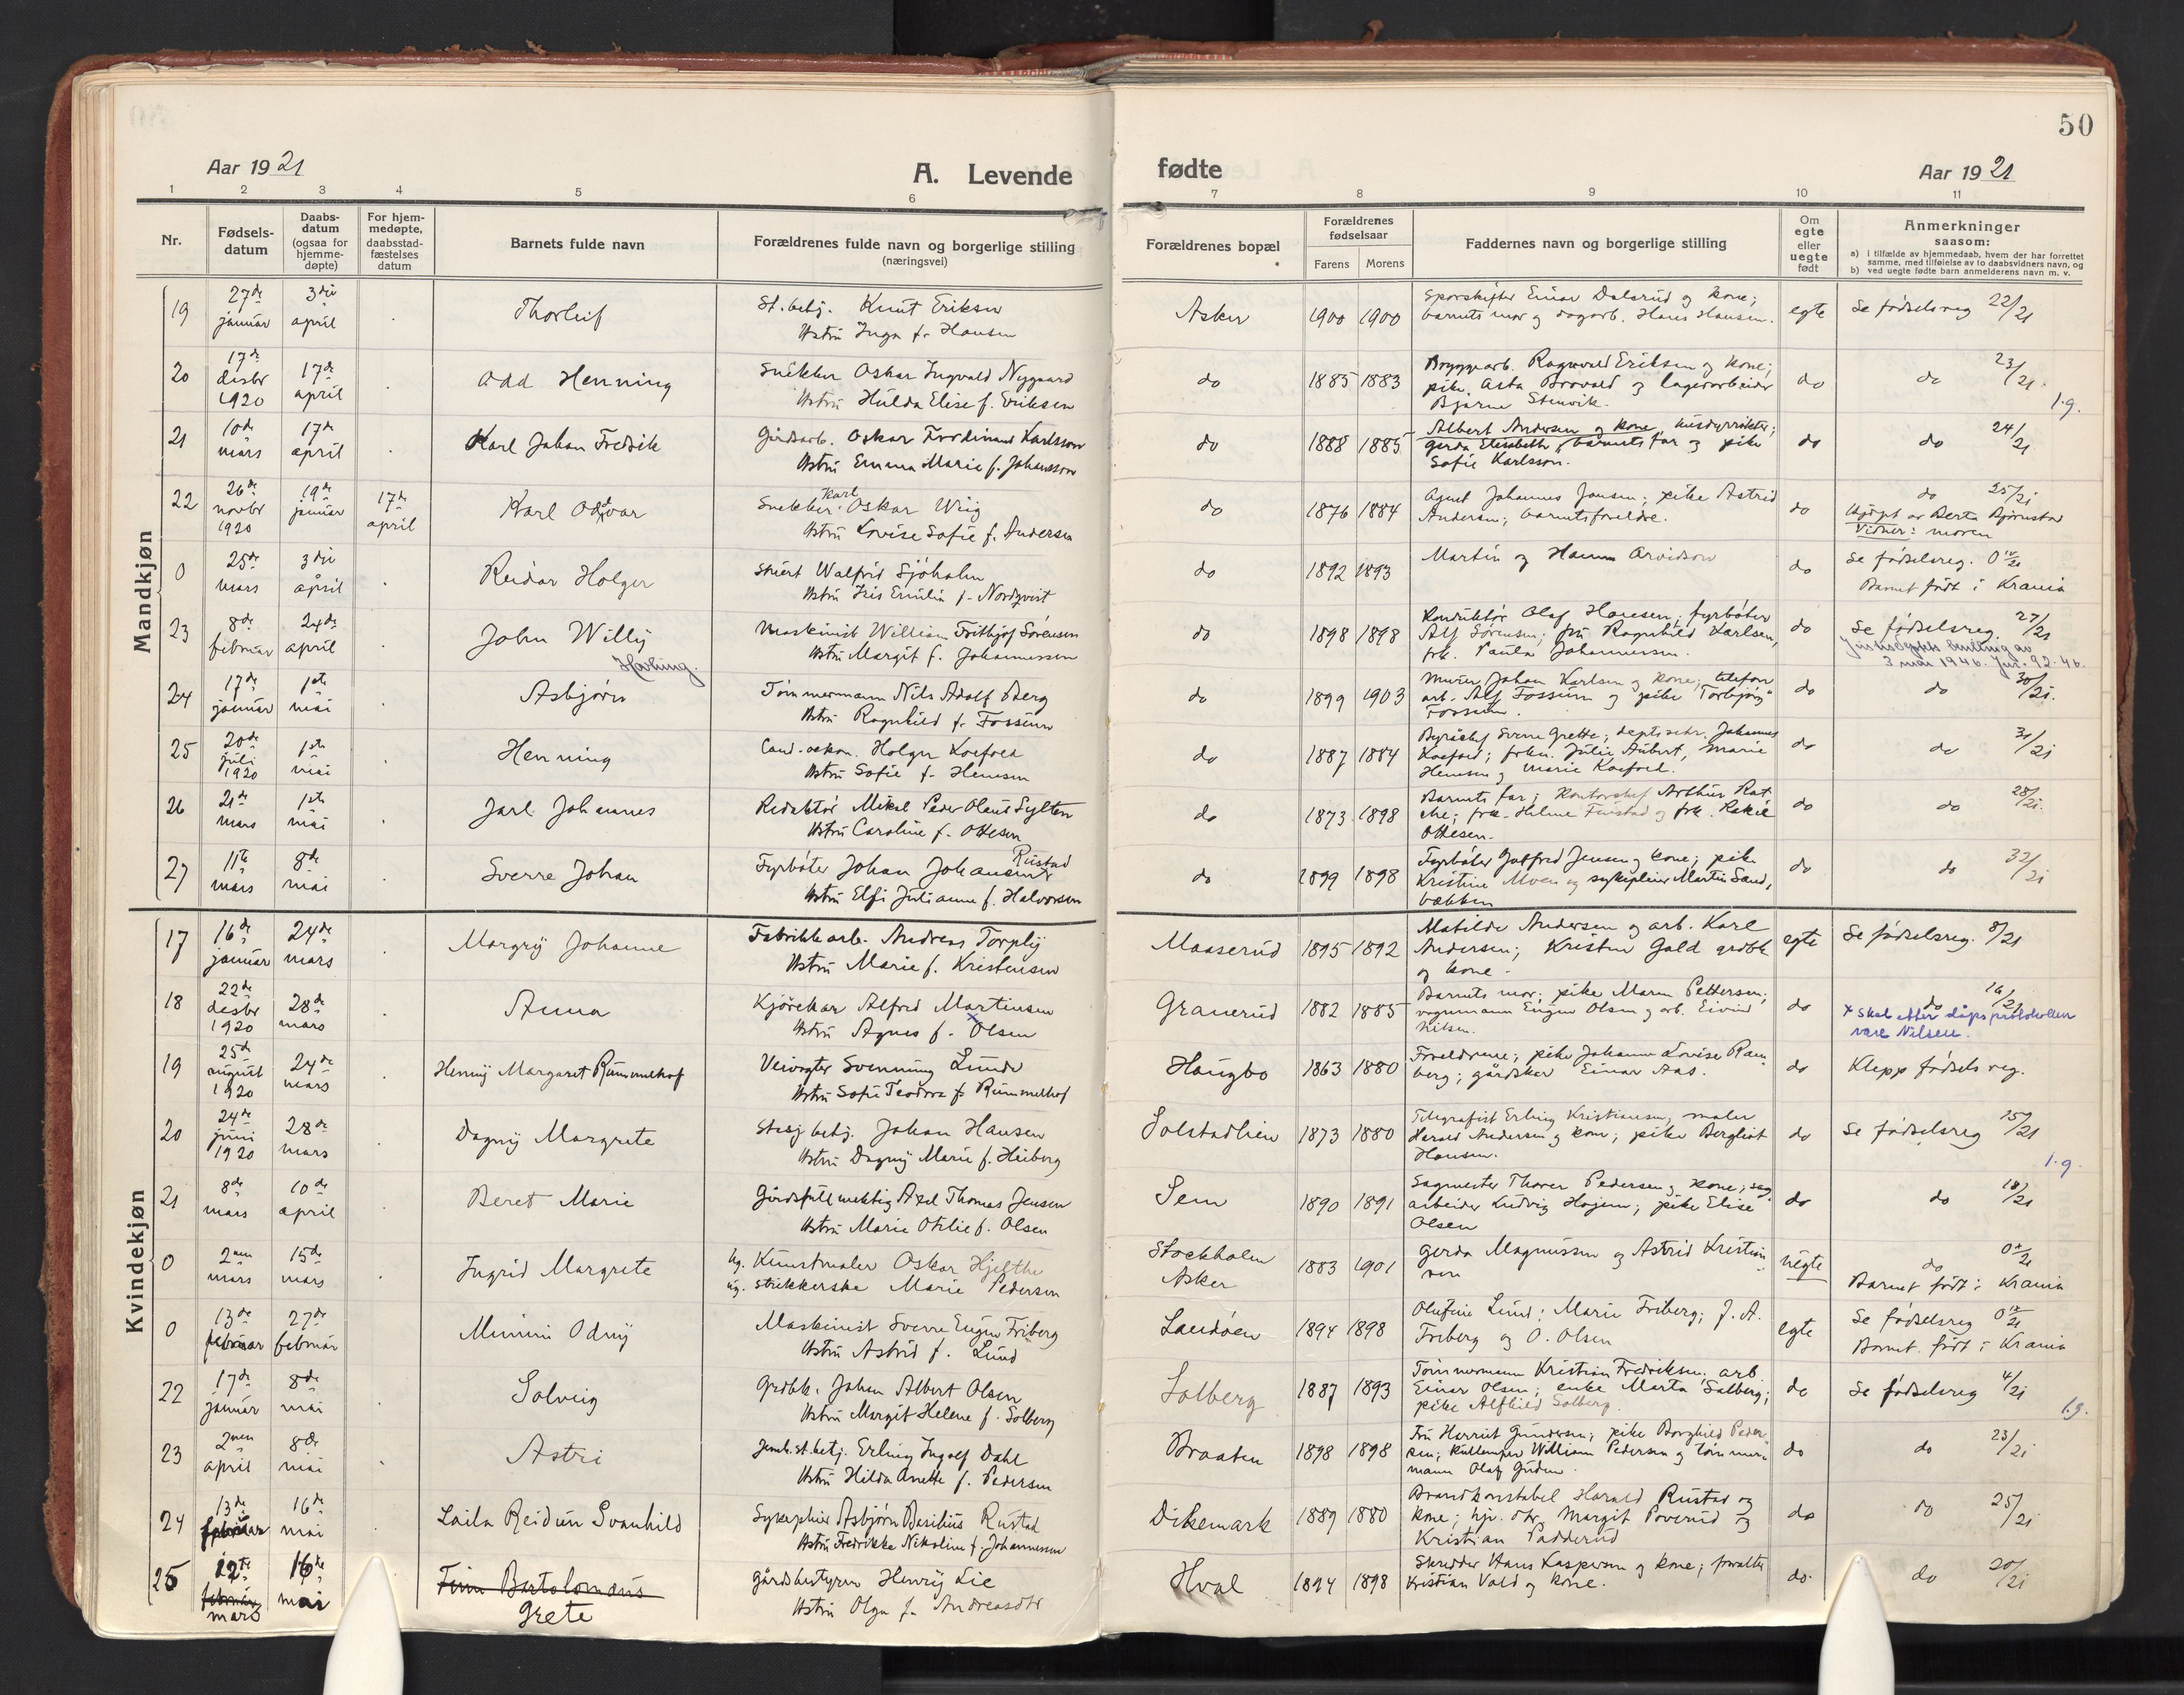 50
Aar 1921
A. Levende
fødte
Aar 1921
1 2 3 4 5 6 7 8 9 10 11
Nr.
Fødselsdatum
Daabsdatum (ogsaa for hjemmedøpte)
For hjemmedøpte, daabsstadfæstelses datum
Barnets fulde navn
Forældrenes fulde navn og borgerlige stilling (næringsvei)
Forældrenes bopæl
Forældrenes fødselsaar
Farens Morens
Faddernes navn og borgerlige stilling
Om egte eller uegte født
Anmerkninger saasom:
a) i tilfælde av hjemmedaab, hvem der har forrettet samme, med tilføielse av to daabsvidners navn, og
b) ved uegte fødte barn anmelderens navn m. v.
Mandkjøn
19 27de januar 3die april Thorleif St. betj. Knut Eriksen
Hstru Inga f. Hansen
Asker 1900 1900 Sporskifter Einar Dalsrud og kone;
barnets mor og dagarb. Hans Hansen.
egte Se fødselsreg 22/21
20 17de desbr 1920 17de april Odd Henning Snekker Oskar Ingvald Nygaard
Hstru Hulda Elise f. Eriksen
do 1885 1883 Bryggearb. Ragnvald Eriksen og kone;
pike Asta Brovald og lagerarbeider
Bjarne Stenvik.
do do 23/21.
1.g.
21 10de mars 17de april Karl Johan Fredrik Gårdsarb. Oskar Ferdinand Karlsson
Hstru Emma Marie f. Johansson
do 1888 1885 Albert Andersen og kone, husdyrrøkter;
Gerda Elisabeth, barnets far og pike
Sofie Karlsson.
do do 24/21
22 26de novbr 1920 19de januar 17de april Karl Oddvar Snekker Karl Oskar Wiig
Hstru Lovise Sofie f. Andersen
do 1876 1884 Agent Johannes Jonsen; pike Astrid
Andersen; barnets foreldre.
do do 25/21
Hjdpt av Berta Bjørnstad
Vidner: moren
0 25de mars 3die april Reidar Holger Stuert Walfrid Sjöholm
Hstru Iris Emilia f. Nordqvist
do 1892 1893 Martin og Hanna Arvidson
do Se fødselsreg. 0
Barnet født i Krania
23 8de februar 24de april John Willy
Haking.
Maskinist William Frithjof Sörensen
Hstru Margit f. Johannessen
do 1898 1898 Konduktør Olaf Hansen; fyrbøter
Alf Sörensen; fru Ragnhild Karlsen,
frk. Paula Johannessen.
do Se fødselsreg. 27/21
3 mai 1946. Jnr. 92.46.
24 17de januar 1ste mai Asbjørn Tømmermann Nils Adolf Berg
Hstru Ragnhild f. Fossum
do 1899 1903 Murer Johan Karlsen og kone; telefon
arb. Alf Fossum og pike Torbjørg
Fossum.
do do 30/21.
25 20de juli 1920 1ste mai Henning Cand. oekon. Holger Koefoed
Hstru Sofie f. Hemsen
do 1887 1884 Byråchef Sverre Grette; Johannes
Koefoed; frkn. Julie Aubert, Marie
Hemsen og Marie Koefoed.
do do 31/21
26 21de mars 1ste mai Jarl Johannes Redaktør Mikal Peder Olaus Sylten
Hstru Caroline f. Ottesen
do 1873 1898 Barnets far; kontorchef Arthur Rat
che; frk. Helene Finstad og frk. Rakel
Ottesen.
do do 28/21.
27 11te mars 8de mai Sverre Johan Fyrbøter Johan Johansen Rustad
Hstru Elfi Julianne f. Halvorsen
do 1899 1898 Fyrbøter Gotfred Jensen og kone; pike
Kristine Moen og sykepleier Martin Sand,
bakken
do do 32/21
Kvindekjøn
17 16de januar 24de mars Margry Johanne Fabrikkarb. Andreas Torply
Hstru Marie f. Kristensen
Maaserud 1895 1892 Matilde Andersen og arb. Karl
Andersen; Kristen Gald grdbk
og kone.
egte Se fødselsreg. 8/21
18 22de desbr 1920 28de mars Anna Kjørekar Alfred Martinsen
Hstru Agnes f. x Olsen
Granerud 1882 1885 Barnets mor; pike Maren Pettersen;
vognmann Eugen Olsen og arb. Eivind
Nilsen.
do do 16/21
x skal etter dåpsprotokollen
være Nilsen.
19 25de august 1920 24de mars Henny Margaret Rummelhof Veivogter Svenning Lunde
Hstru Sofie Teodora f. Rummelhof
Haugbo 1863 1880 Foreldrene; pike Johanne Lovise Ram
berg; gårdskar Einar Aas.
do Klepp fødselsreg.
20 24de juni 1920 28de mars Dagny Margrete Stasj. betj. Johan Hansen
Hstru Dagny Marie f. Heiberg
Solstadlien 1873 1880 Telegrafist Erling Kristiansen, maler
Harald Andersen og kone; pike Bergliot
Hansen.
do Se fødselsreg 15/21
1.g.
21 8de mars 10de april Beret Marie Gårdsfullmektig Axel Thomas Jensen
Hstru Marie Otilie f. Olsen
Sem 1890 1891 Sagmester Thorer Pedersen og kone; sag
arbeider Ludvig Hojem; pike Elise
Olsen
do do 18/21
0 2nen mars 15de mars Ingrid Margrete Ug. Kunstmaler Oskar Hjelthe
ug. strikkerske Marie Pedersen
Stockholm
Asker
1883 1901 Gerda Magnussen og Astrid Kristian
sen
uegte do
Barnet født i Krania
0 13de februar 27de februar Mimmi Odny Maskinist Sverre Eugen Friberg
Hstru Astrid f. Lund
Landöen 1894 1898 Olufine Lund; Marie Friberg; J. A.
Friberg og O. Olsen
egte Se fødselsreg 0
Barnet født i Krania
22 17de januar 8de mai Solveig Grdbk. Johan Albert Olsen
Hstru Margit Helene f. Solberg
Solberg 1887 1893 Tømmermann Kristian Fredriksen; arb
Einar Olsen; enke Marta Solberg;
pike Alfhild Solberg.
do Se fødselsreg 4/21
1.g.
23 2nen april 8de mai Astri Jernb. st. betj. Erling Ingolf Dahl
Hstru Hilda Anette f. Pedersen
Braaten 1898 1898 Fru Harriet Gundersen; pike Borghild Peder
sen; William Pedersen og tømmer
mann Olaf Guden.
do do 23/21
24 13de februar 16de mai Laila Reidun Svanhild Sykepleier Asbjørn Basilius Rustad
Hstru Fredrikke Nikoline f. Johannessen
Dikemark 1889 1880 Brandkonstabel Harald Rustad og
kone; hjr. dtr. Margit Poverud og
Kristian Padderud
do do 25/21
25 12te februar mars 16de mai Finn Bartolomæus
Grete
Gårdsbestyrer Henry Lie
Hstru Olga f. Andreasdtr
Hval 1894 1898 Skredder Hans Kaspersen og kone; forvalter
Kristian Vold og kone.
do. do 20/21